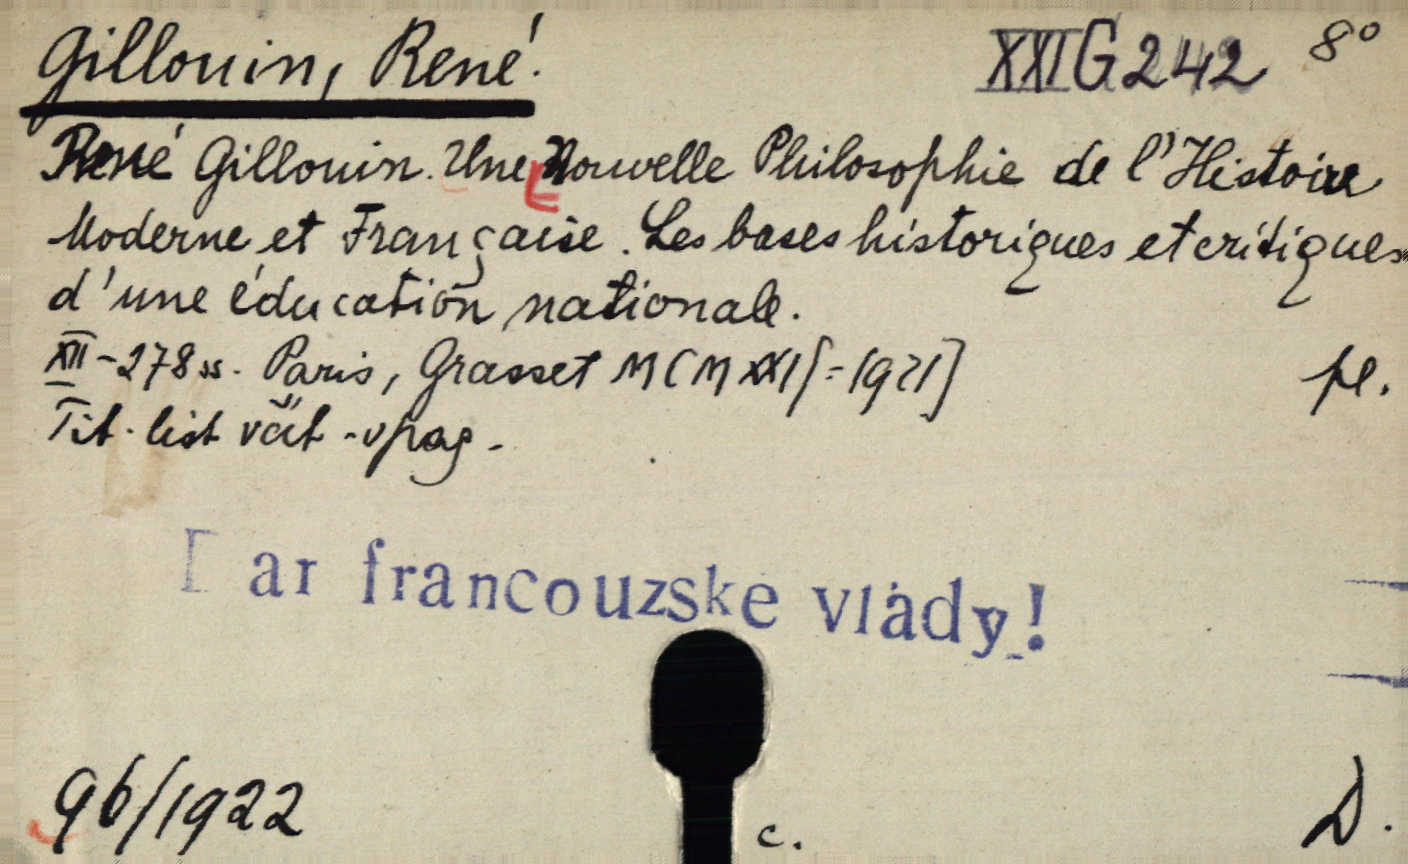 Gillouin, René.
XXI G 242 8°
René Gillouin. Une Nouvelle Philosophie de l'Histoire
Moderne et Française. Les bases historiques et critiques
d'une éducation nationale.
XII-278 ss. Paris, Grasset MCMXXI [=1921] pl.
Tit. list
Dar francouzske vlády!
96/1922
c. D.